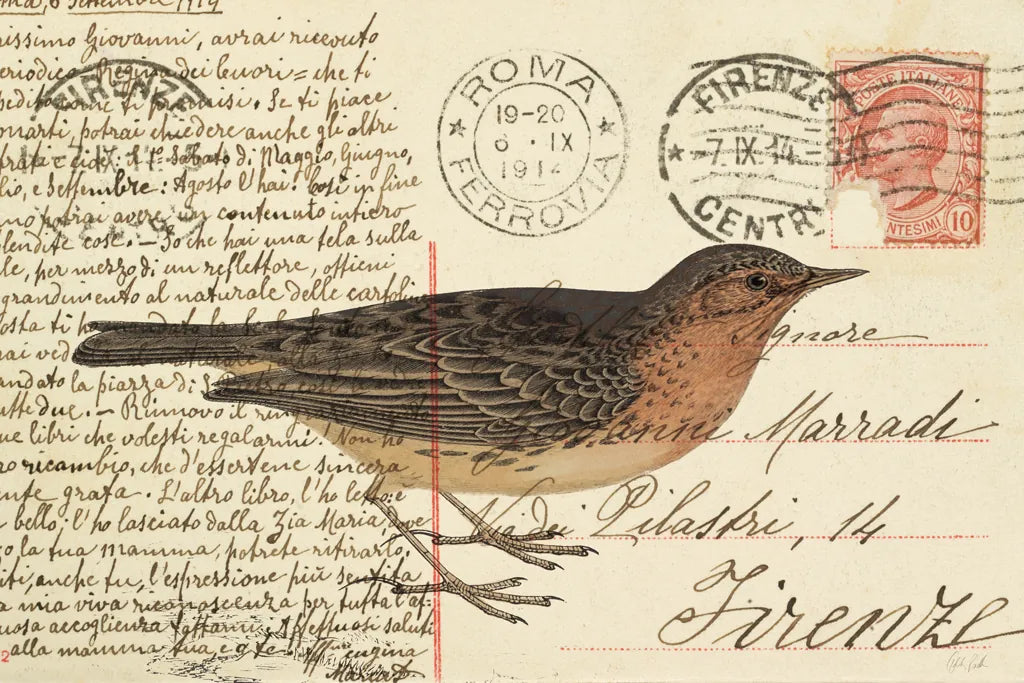 6 Settembre 1914
rissimo Giovanni, avrai ricevuto
eriodico Regina dei cuori = che ti
come ti promisi. Se ti piace
potrai chiedere anche gli altri
Sabato di Maggio, Giugno,
lio, e Settembre: Agosto l'hai! Così in fine
potrai avere un contenuto intiero
lendite cose. – So che hai una tela sulla
le, per mezzo di un reflettore, ottieni
grandimento al naturale delle cartoline
osta ti ho mandato la
andato la piazza di S. Pietro così
utte due. – Rinnovo il
ue libri che volesti regalarmi! Non ho
ro ricambio, che d'essertene sincera
ente grata. L'altro libro, l'ho letto: è
bello; l'ho lasciato dalla Zia Maria, ove
o la tua mamma, potrete ritirarlo.
iti, anche tu, l'espressione più sentita
a mia viva riconoscenza per tutta l'af-
uosa accoglienza fattami. Affettuosi saluti
alla mamma tua, e a te. cugina
FIRENZE
ROMA
19-20
6 · IX
1914
FERROVIA
FIRENZE
-7.IX.14.
CENTR
POSTE ITALIANE
NTESIMI 10
Signore
Giovanni Marradi
Via dei Pilastri, 14
Firenze
2